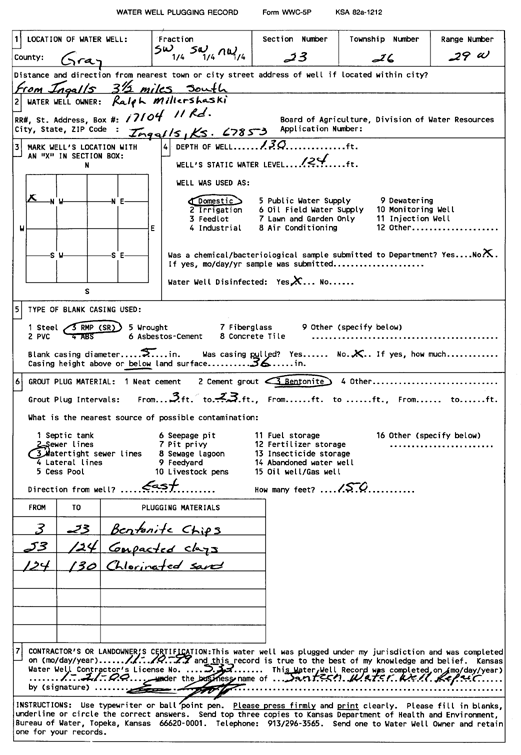 WATER WELL PLUGGING RECORD Form WWC-5P KSA 82a-1212
1 LOCATION OF WATER WELL: Fraction Section Number Township Number Range Number
County: Gray SW 1/4 SW 1/4 NW 1/4 23 26 29 W
Distance and direction from nearest town or city street address of well if located within city?
From Ingalls 3½ miles South
2 WATER WELL OWNER: Ralph Millershaski
RR#, St. Address, Box #: 17104 11 Rd. Board of Agriculture, Division of Water Resources
City, State, ZIP Code : Ingalls, Ks. 67853 Application Number:
3 MARK WELL'S LOCATION WITH AN "X" IN SECTION BOX:
N
X N W N E
W E
S W S E
S
4 DEPTH OF WELL......130......ft.
WELL'S STATIC WATER LEVEL...124...ft.
WELL WAS USED AS:
1 Domestic 5 Public Water Supply 9 Dewatering
2 Irrigation 6 Oil Field Water Supply 10 Monitoring Well
3 Feedlot 7 Lawn and Garden Only 11 Injection Well
4 Industrial 8 Air Conditioning 12 Other...................
Was a chemical/bacteriological sample submitted to Department? Yes....No X.
If yes, mo/day/yr sample was submitted....................
Water Well Disinfected: Yes X... No......
5 TYPE OF BLANK CASING USED:
1 Steel 3 RMP (SR) 5 Wrought 7 Fiberglass 9 Other (specify below)
2 PVC 4 ABS 6 Asbestos-Cement 8 Concrete Tile ....................
Blank casing diameter.....5.....in. Was casing pulled? Yes...... No.X.. If yes, how much...........
Casing height above or below land surface..........36......in.
6 GROUT PLUG MATERIAL: 1 Neat cement 2 Cement grout 3 Bentonite 4 Other....................
Grout Plug Intervals: From...3.ft. to..23.ft., From......ft. to ......ft., From...... to......ft.
What is the nearest source of possible contamination:
1 Septic tank 6 Seepage pit 11 Fuel storage 16 Other (specify below)
2 Sewer lines 7 Pit privy 12 Fertilizer storage ....................
3 Watertight sewer lines 8 Sewage lagoon 13 Insecticide storage
4 Lateral lines 9 Feedyard 14 Abandoned water well
5 Cess Pool 10 Livestock pens 15 Oil well/Gas well
Direction from well? ....East.......... How many feet? ....150.........
FROM TO PLUGGING MATERIALS
3 23 Bentonite Chips
23 124 Compacted clays
124 130 Chlorinated sand
7 CONTRACTOR'S OR LANDOWNER'S CERTIFICATION:This water well was plugged under my jurisdiction and was completed
on (mo/day/year)......11-10-99 and this record is true to the best of my knowledge and belief. Kansas
Water Well Contractor's License No. ....533....... This Water Well Record was completed on (mo/day/year)
...1-21-00....under the business name of ...Santech Water Well Repair
by (signature)
INSTRUCTIONS: Use typewriter or ball point pen. Please press firmly and print clearly. Please fill in blanks,
underline or circle the correct answers. Send top three copies to Kansas Department of Health and Environment,
Bureau of Water, Topeka, Kansas 66620-0001. Telephone: 913/296-3565. Send one to Water Well Owner and retain
one for your records.